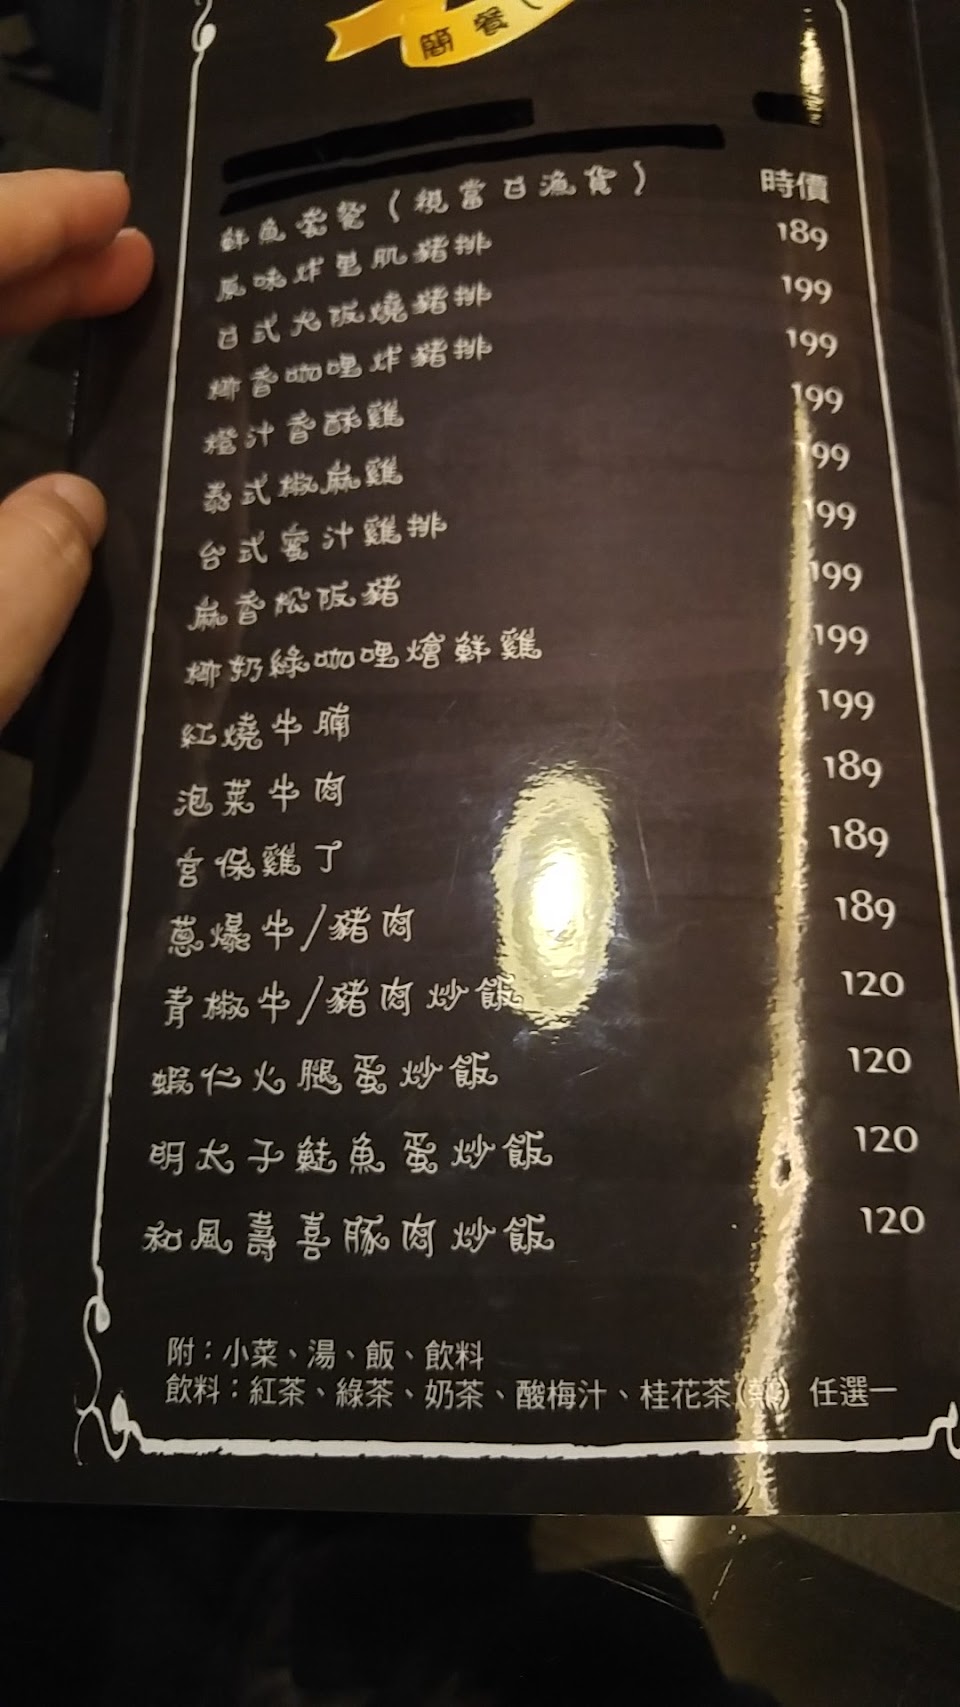 簡餐
鮮魚套餐(視當日漁貨) 時價
原味炸里肌豬排 189
日式大阪燒豬排 199
椰香咖哩炸豬排 199
橙汁香酥雞 199
泰式椒麻雞 199
台式蜜汁雞排 199
麻香松阪豬 199
椰奶綠咖哩燴鮮雞 199
紅燒牛腩 199
泡菜牛肉 189
宮保雞丁 189
蔥爆牛/豬肉 189
青椒牛/豬肉炒飯 120
蝦仁火腿蛋炒飯 120
明太子鮭魚蛋炒飯 120
和風壽喜豚肉炒飯 120
附:小菜、湯、飯、飲料
飲料:紅茶、綠茶、奶茶、酸梅汁、桂花茶(熱) 任選一